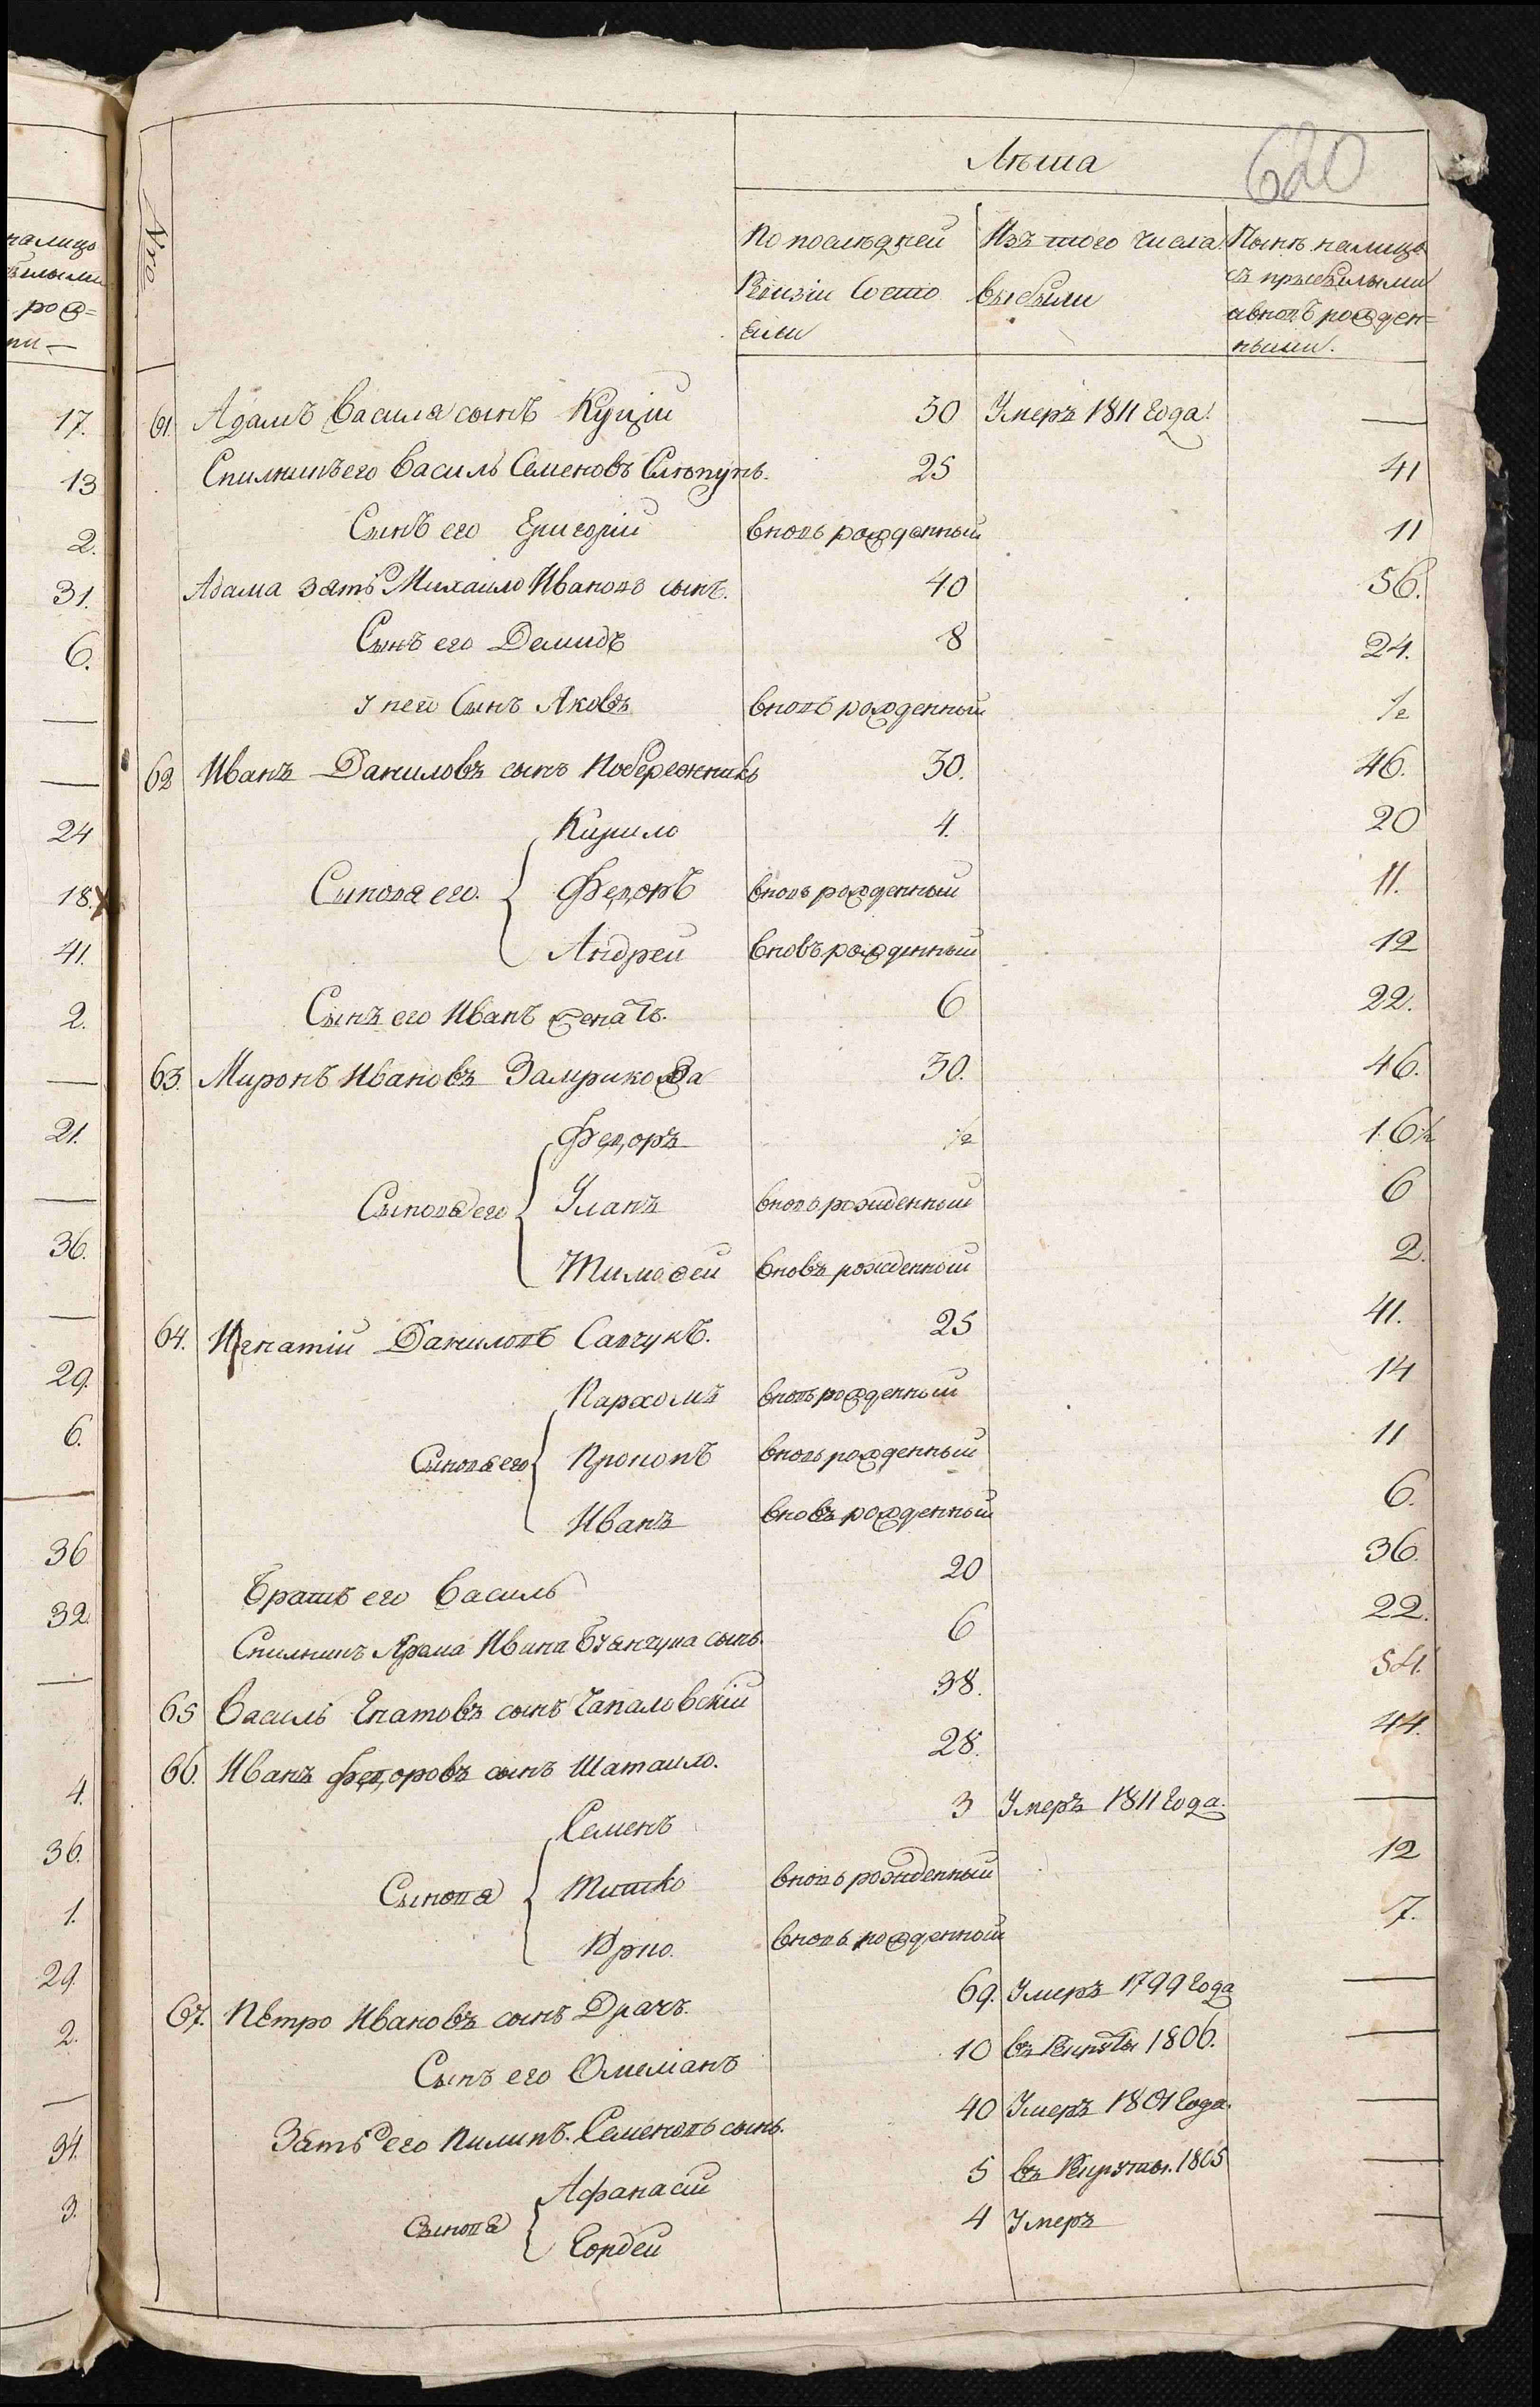 налицо
былыми
рож=
ми —
17.
13
2.
31.
6.
—
—
24
18.
41.
2.
—
21.
—
36.
—
29.
6.
—
36
32.
—
4.
36.
1.
29
2.
—
34.
3.
620
Лѣта
Nro
По последней Ревизіи Состояли
Изъ того числа выбыли
Нынѣ налицо съ прыбылыми ивновъ рожденными.
61. Адамъ Василя сынъ Куцій 30 Умеръ 1811 Года. —
Спилникъ его Василь Семеновъ Слѣпунъ. 25 41
Сынъ его Григорій вновь рожденный 11
Адама зять Михайло Ивановъ сынъ. 40 56.
Сынъ его Демидъ 8 24.
У него Сынъ Яковъ вновъ рожденный ½
62 Иванъ Даниловъ сынъ Побережникъ 30. 46.
Кирило 4. 20
Сыновя его. Федоръ вновь рожденный 11.
Андрей вновъ рожденный 12
Сынъ его Иванъ женатъ. 6 22.
63. Миронъ Ивановъ Замрикожа 30. 46.
Федоръ ½ 16½
Сыновя его Уланъ вновь рожденный 6
Тимофей вновъ рожденный 2.
64. Игнатій Даниловъ Савчукъ. 25 41.
Пархомъ вновь рожденный 14
Сыновя его Прокопъ вновь рожденный 11
Иванъ вновъ рожденный 6.
Братъ его Василь 20 36.
Спилникъ Ивана сынъ. 6 22.
65 Василь Гнатовъ сынъ Чапаловскій 38. 54.
66. Иванъ Федоровъ сынъ Шатайло. 28. 44.
Семенъ 3 Умеръ 1811 Года. —
Сыновя Тишко вновь рожденный 12
Юрко. вновь рожденный 7.
67. Петро Ивановъ сынъ Драчъ. 69. Умеръ 1799 Года —
Сынъ его Омеліанъ 10 въ Рекруты 1806. —
Зять его Пилипъ. Семеновъ сынъ. 40 Умеръ 1801 Года. —
Афанасій 5 въ Рекруты. 1805 —
Сыновя Гордей 4 Умеръ —